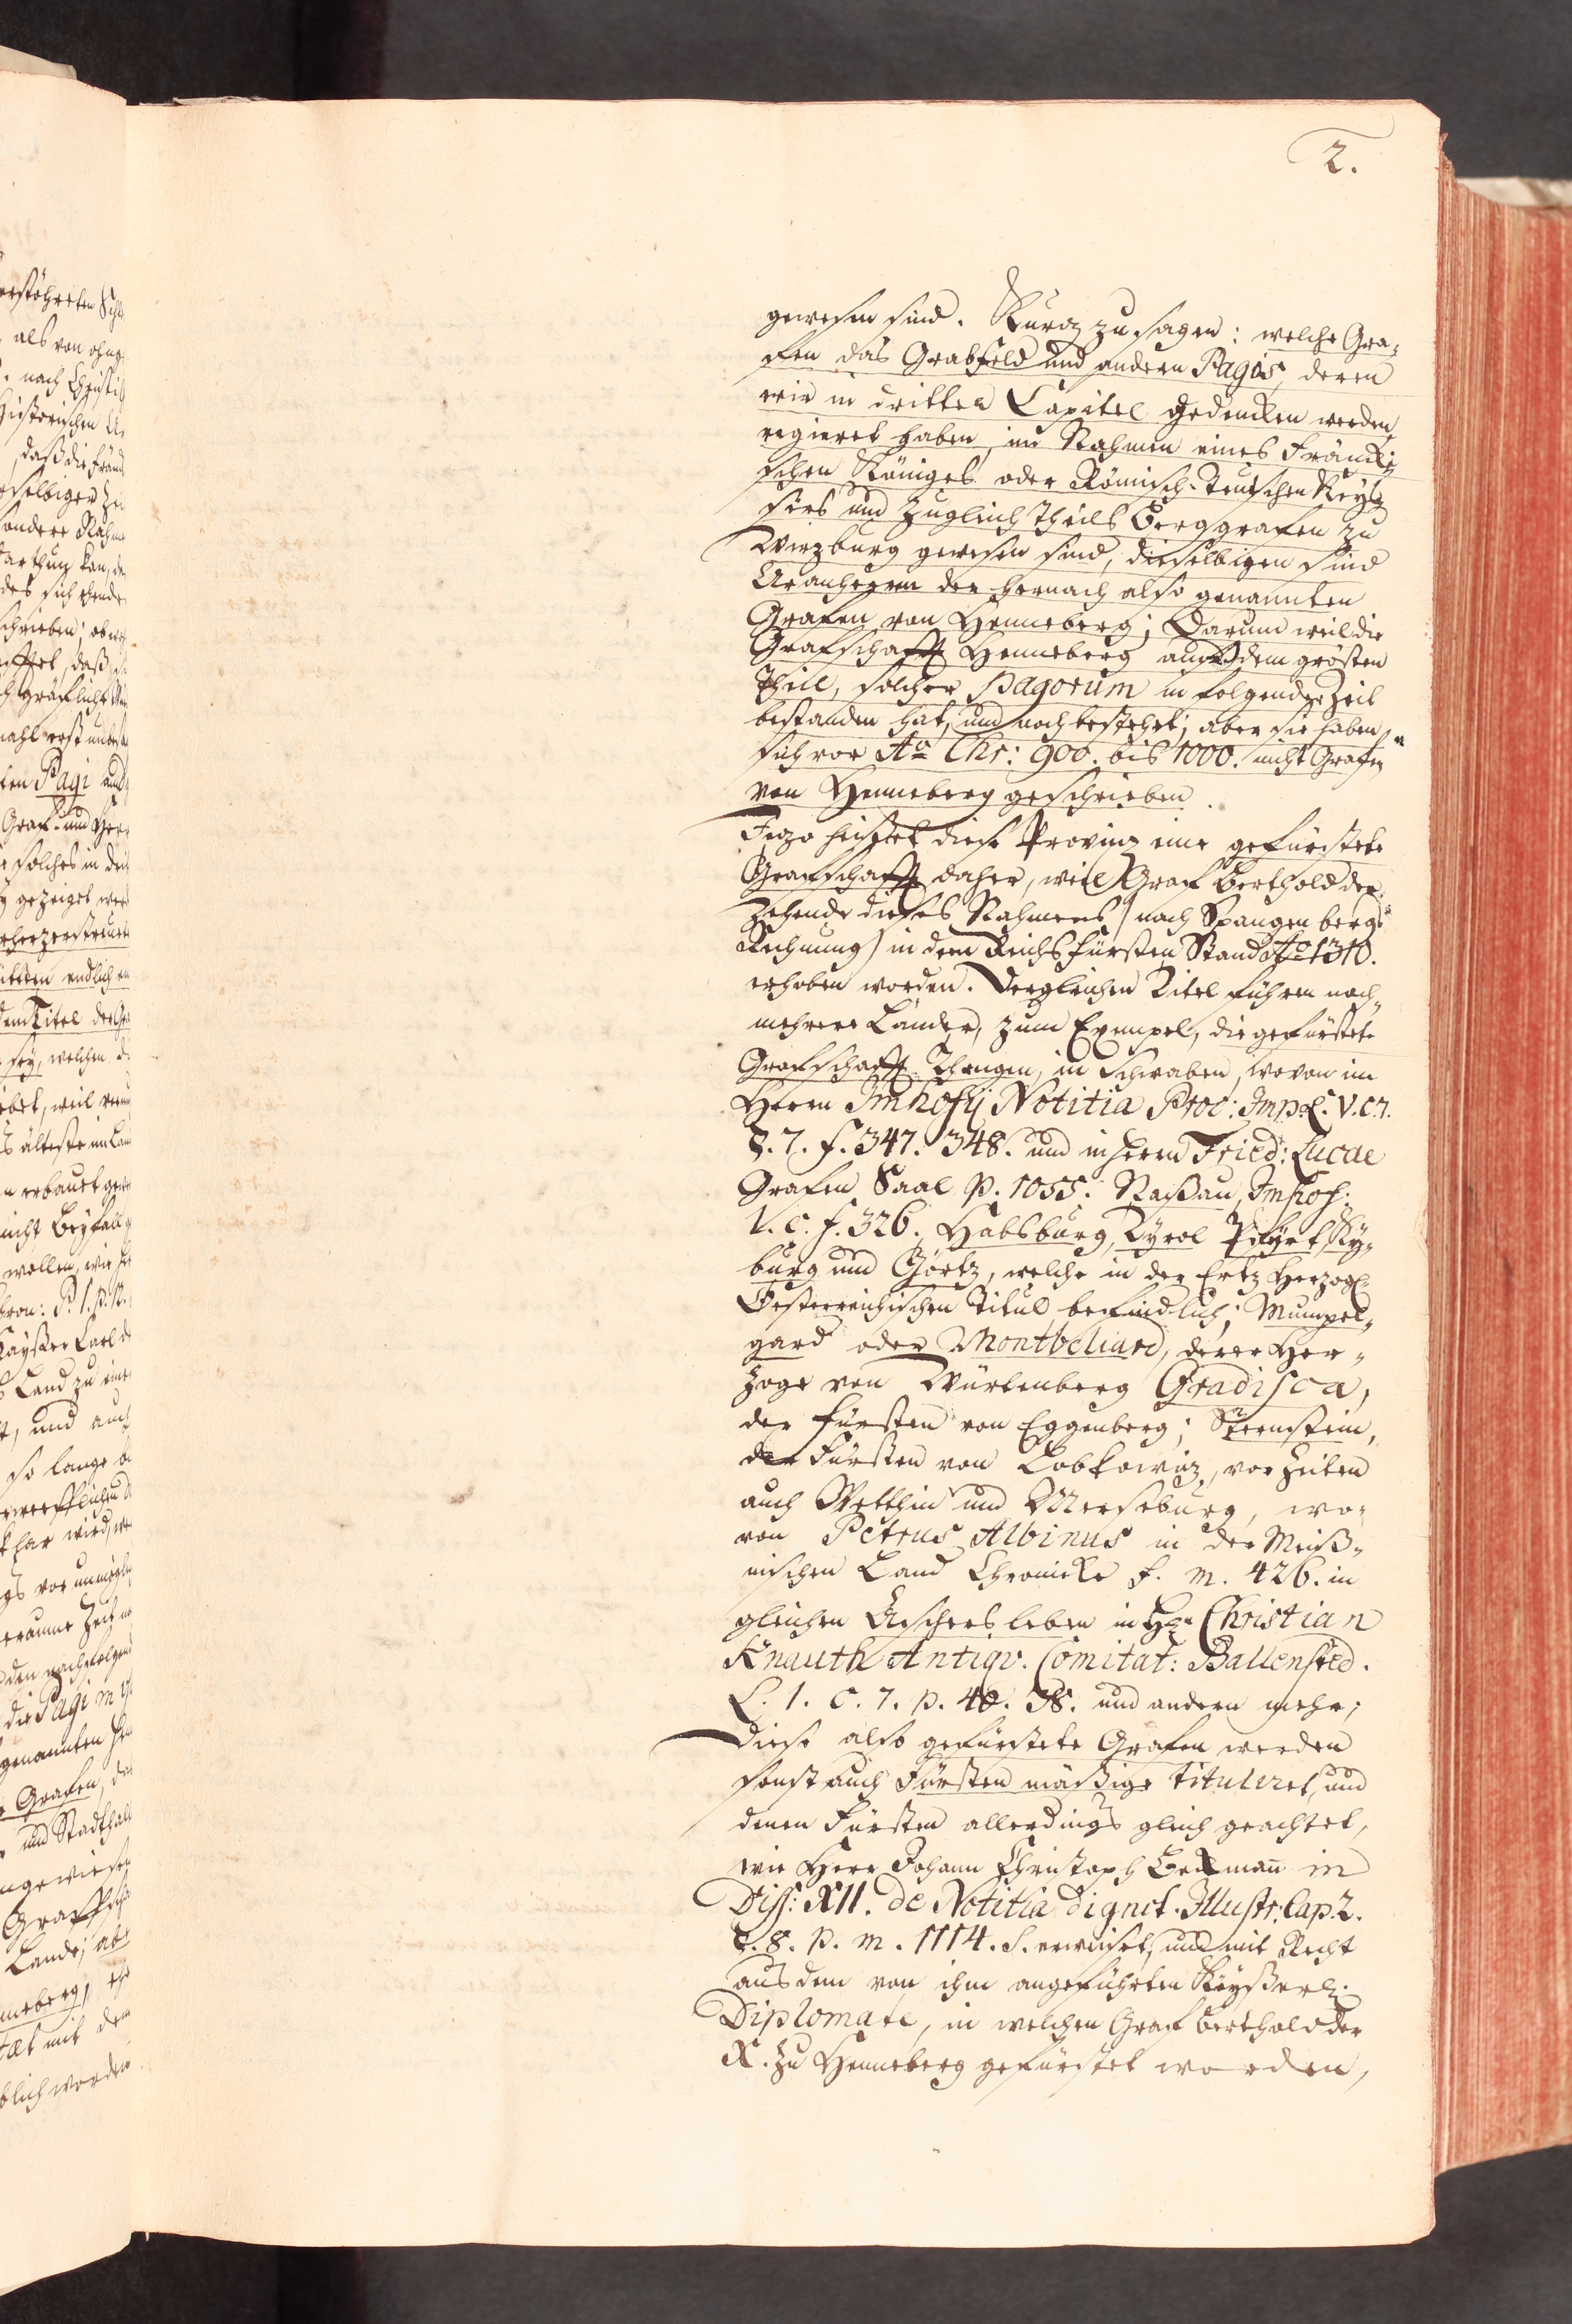 2.
gewesen sind. Kurz zu sagen: welche Gra-
fen das Grabfeld und andern Pagis, deren
wir in dritten Capitel gedencken werden,
regieret haben, im Nahmen eines Fräncki-
schen Königes oder Römisch-Teutschen Keys-
sers und zugleich theils Berggrafen zu
Wirzburg gewesen sind, dieselbigen sind
Uranherrn der hernach also genannten
Grafen von Henneberg; Darum weil die
Grafschafft Henneberg aus dem grösten
Theil, solcher Pagorum in folgender Zeit
bestanden hat, und noch bestehet; aber sie haben
sich vor Ao Chr: 900. bis 1000. nicht Grafen
von Henneberg geschrieben.
Jezo heisset diese Provinz eine gefürstete
Grafschafft daher, weil Graf Berthold der
Zehende dieses Nahmens (nach Spangenbergs
Rechnung) in dem Reichs Fürsten Stand Ao 1310.
erhoben worden. Dergleichen Titel führen noch
mehrere Länder, zum Exempel, die gefürstete
Grafschafft Thengen, in Schwaben, wovon im
Herrn Imhofij Notitia Proc: Imp. L. V. C. 7.
§. 7. f. 347. 348. und in Herrn Fried: Lucae
Grafen Saal p. 1055. Naßau, Imhof.
l. c. f. 326. Habsburg, Tyrol Pfyrt, Ky-
burg und Görtz, welche in der Ertz Herzogl.
Oesterreichischen Titul befindlich; Mumpel-
gard oder Montbeliard, derer Her-
zoge von Würtenberg Gradisca,
der Fürsten von Eggenberg; Sternstein,
der Fürsten von Lobkowiz, vor Zeiten
auch Wetthin und Merseburg, wo-
von Petrus Albinus in der Meiß-
nischen Land Chronicke f. m. 426. in
gleichen Aschersleben in Hrn Christian
Knauth Antiqv. Comitat: Ballensted.
L. 1. c. 7. p. 40. und andern mehr;
Diese also gefürstete Grafen werden
sonst auch Fürsten mäßige tituleret, und
denen Fürsten allerdings gleich geachtet,
wie Herr Johann Christoph Bekmañ in
Diss: XII. de Notitia dignit. Illustr. Cap. 2.
§. 8. p. m. 1114. s. erweiset, und mit Recht
aus dem von ihm angeführten Käyßerl.
Diplomate, in welchen Graf Berthold der
X. zu Henneberg gefürstet worden,